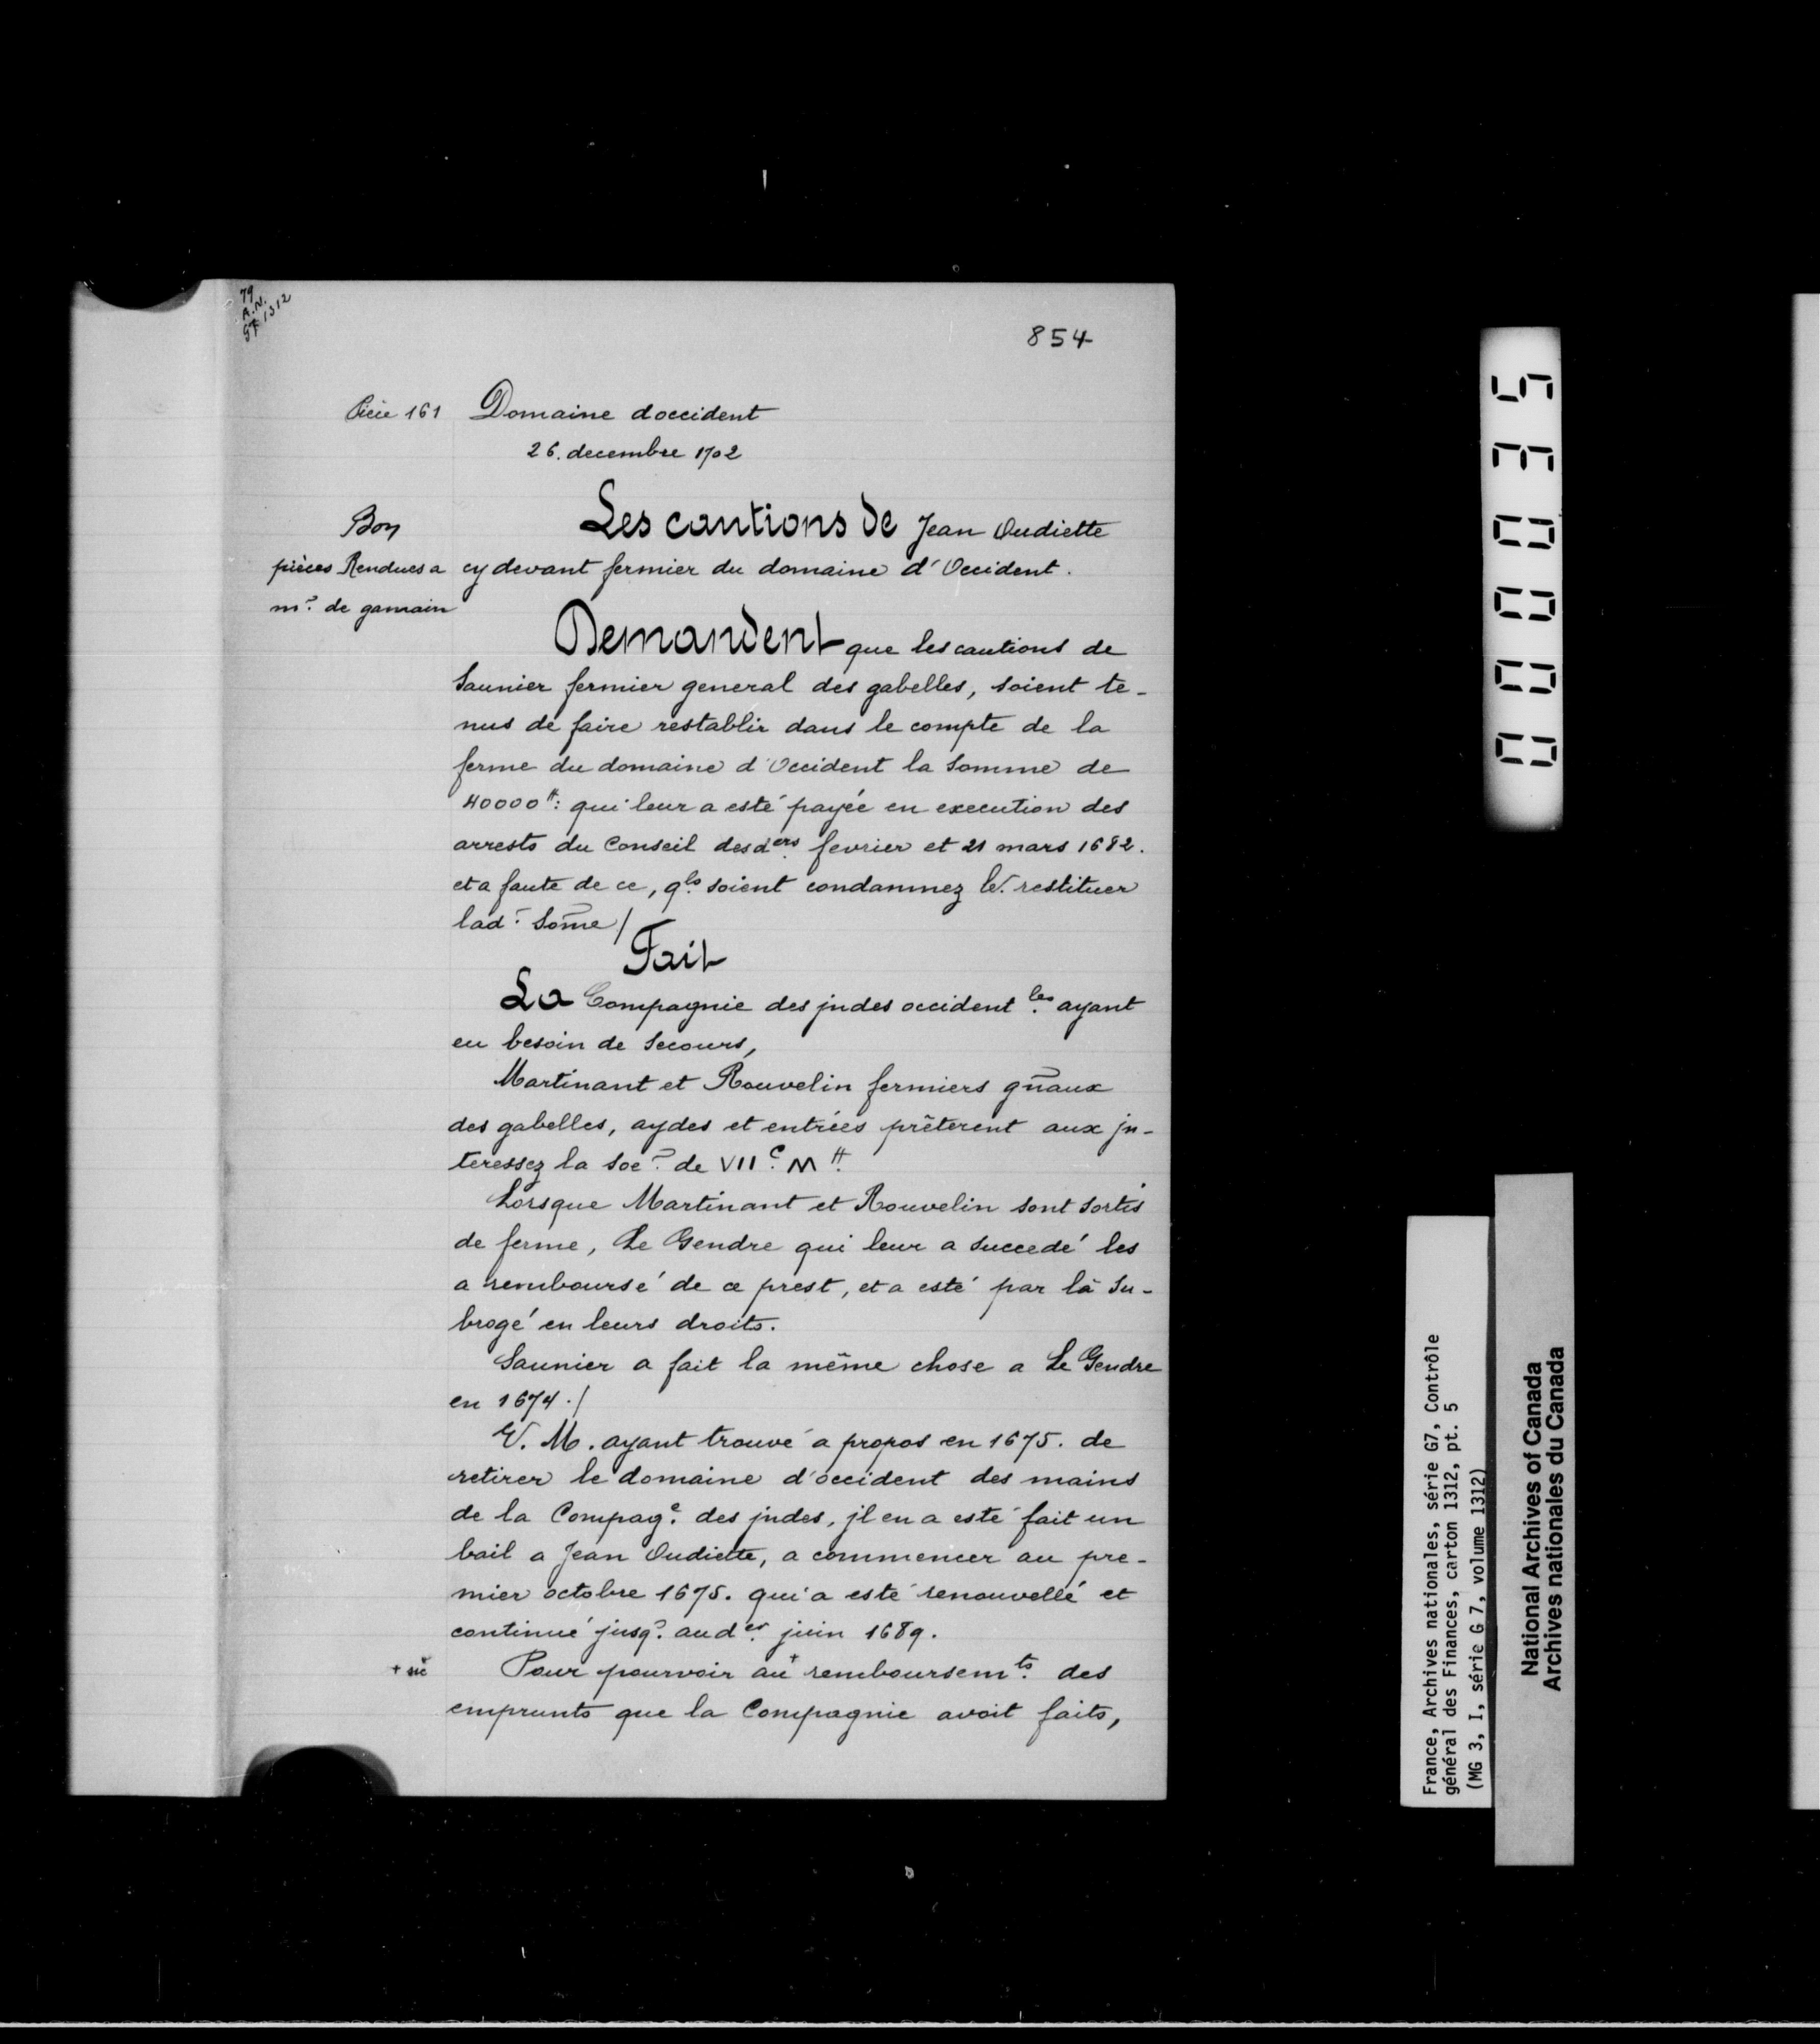 79
A.N.
G7 1312
854
Pièce 161 Domaine doccident
26. decembre 1702
Bon
pièces Rendues a
mr. de gamain
Les cautions de Jean Oudiette
cy devant fermier du domaine d'Occident.
Demandent que les cautions de
Saunier fermier general des gabelles, soient te-
nus de faire restablir dans le compte de la
ferme du domaine d'Occident la Somme de
40000 ₶: qui leur a esté payée en execution des
arrests du Conseil des ders. fevrier et 21 mars 1682.
et a faute de ce, qls. soient condamnez de restituer
lad. Som̃e /
Fait
La Compagnie des jndes occident les. ayant
eu besoin de Secours,
Martinant et Rouvelin fermiers gñaux
des gabelles, aydes et entrées prêterent aux jn-
teressez la soe. de VII C. M ₶.
Lorsque Martinant et Rouvelin sont sortis
de ferme, Le Gendre qui leur a succedé les
a remboursé de ce prest, et a esté par là Su-
brogé en leurs droits.
Saunier a fait la même chose a Le Gendre
en 1674 . /
V. M. ayant trouvé a propos en 1675. de
retirer le domaine d'occident des mains
de la Compag e. des jndes, jl en a esté fait un
bail a Jean Oudiette, a commencer au pre-
mier octobre 1675. qui a esté renouvellé et
continué jusq. au der. juin 1689.
+ sic
Pour pourvoir au + remboursem ts. des
emprunts que la Compagnie avoit faits,
000035
France, Archives nationales, série G7, Contrôle
général des Finances, carton 1312, pt. 5
(MG 3, I, série G 7, volume 1312)
National Archives of Canada
Archives nationales du Canada